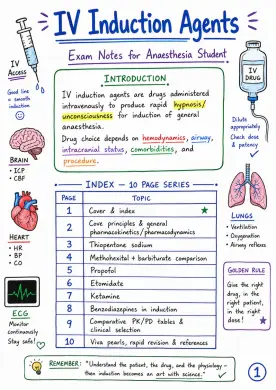 IV Induction Agents
Exam Notes for Anaesthesia Student
IV
Access
Good line
= smooth
induction
INTRODUCTION
IV induction agents are drugs administered
intravenously to produce rapid hypnosis/
unconsciousness for induction of general
anaesthesia.
Drug choice depends on hemodynamics, airway,
intracranial status, comorbidities, and
procedure.
IV
DRUG
Dilute
appropriately
Check dose
& patency
BRAIN
• ICP
• CBF
HEART
• HR
• BP
• CO
ECG
Monitor
continuously
Stay safe!
INDEX – 10 PAGE SERIES
PAGE TOPIC
1 Cover & index
2 Core principles & general
pharmacokinetics/pharmacodynamics
3 Thiopentone sodium
4 Methohexital + barbiturate comparison
5 Propofol
6 Etomidate
7 Ketamine
8 Benzodiazepines in induction
9 Comparative PK/PD tables &
clinical selection
10 Viva pearls, rapid revision & references
LUNGS
• Ventilation
• Oxygenation
• Airway reflexes
GOLDEN RULE
Give the right
drug, in the
right patient,
in the right
dose!
REMEMBER: "Understand the patient, the drug, and the physiology –
then induction becomes an art with science."
1